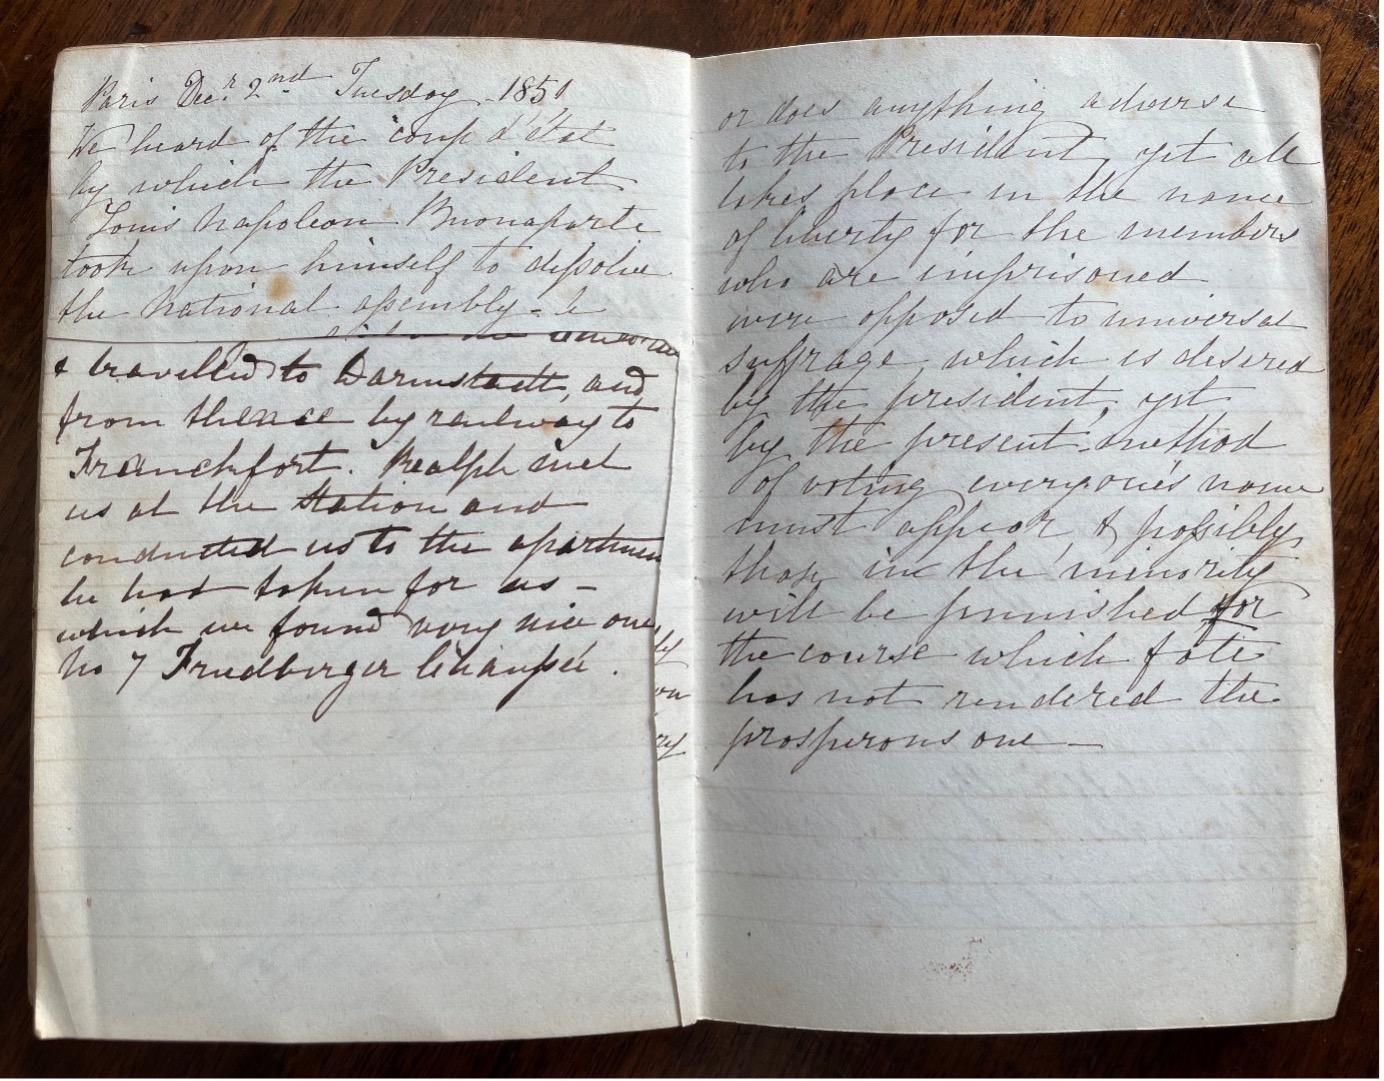 Paris Decr. 2nd Tuesday 1851
We heard of the coup d'état
by which the President
Louis Napoleon Buonaparte
took upon himself to dissolve
the National assembly -
& travelled to Darmstadt, and
from thence by railway to
Franckfort. Ralph met
us at the Station and
conducted us to the apartmen
he had taken for us -
which we found very nice one
No 7 Friedberger Chaussée.
ry
or does anything adverse
to the President, yet all
takes place in the name
of liberty for the members
who are imprisoned
were opposed to universal
suffrage which is desired
by the president, yet
by the present method
of voting everyone's name
must appear & possibly
those in the minority
will be punished for
the course which fate
has not rendered the
prosperous one —